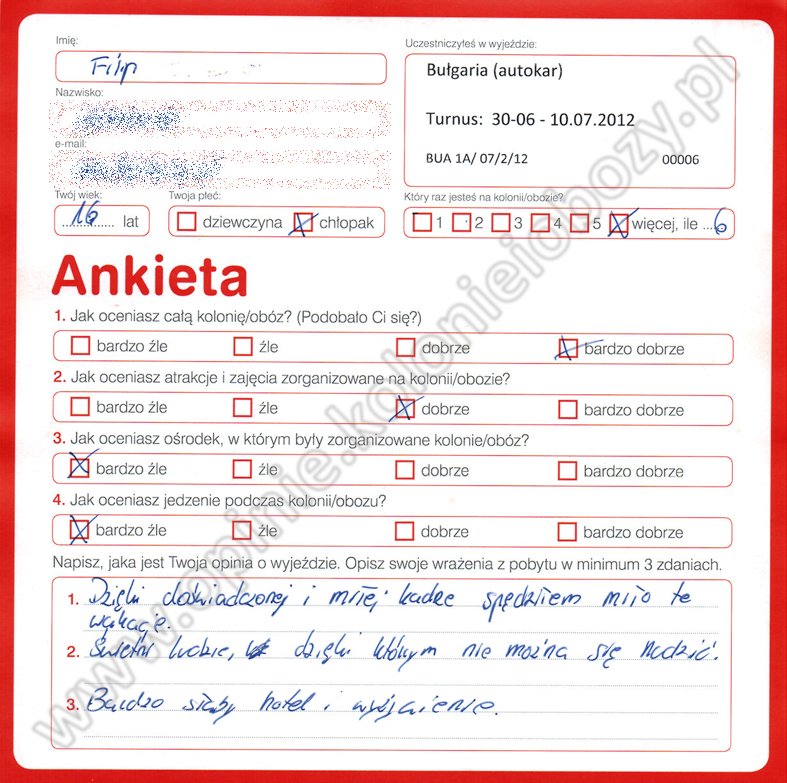 Imię:
Filip
Nazwisko:
e-mail:
Uczestniczyłeś w wyjeździe:
Bułgaria (autokar)
Turnus: 30-06 - 10.07.2012
BUA 1A/ 07/2/12 00006
Twój wiek:
16 lat
Twoja płeć:
dziewczyna chłopak
Który raz jesteś na kolonii/obozie?
1 2 3 4 5 więcej, ile ...6
Ankieta
1. Jak oceniasz całą kolonię/obóz? (Podobało Ci się?)
bardzo źle źle dobrze bardzo dobrze
2. Jak oceniasz atrakcje i zajęcia zorganizowane na kolonii/obozie?
bardzo źle źle dobrze bardzo dobrze
3. Jak oceniasz ośrodek, w którym były zorganizowane kolonie/obóz?
bardzo źle źle dobrze bardzo dobrze
4. Jak oceniasz jedzenie podczas kolonii/obozu?
bardzo źle źle dobrze bardzo dobrze
Napisz, jaka jest Twoja opinia o wyjeździe. Opisz swoje wrażenia z pobytu w minimum 3 zdaniach.
1. Dzięki doświadczonej i miłej kadrze spędziłem miło te
wakacje.
2. Świetni ludzie, dzięki którym nie można się nudzić.
3. Bardzo słaby hotel i wyżywienie.
www.opinie.kolonieiobozy.pl